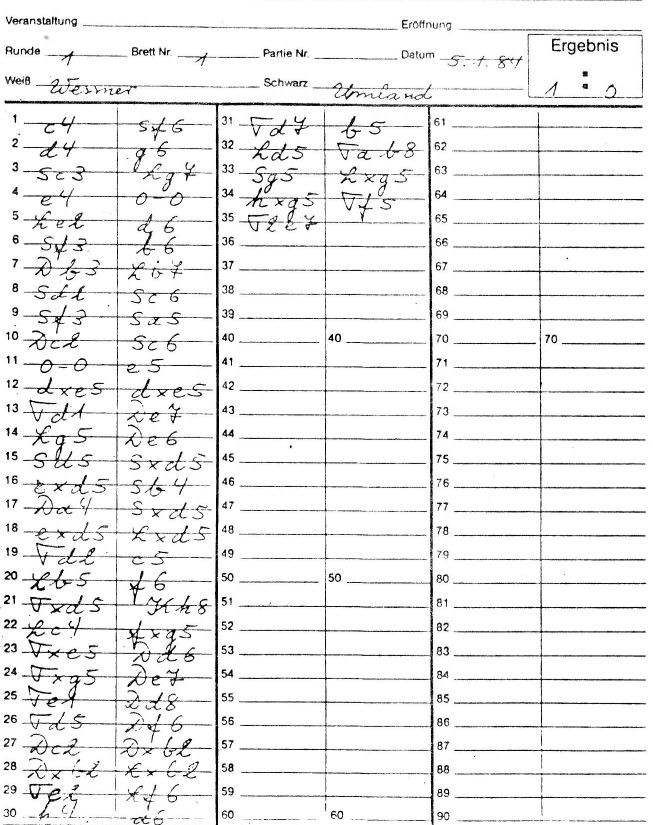 Veranstaltung Eröffnung
Runde 1 Brett Nr. 1 Partie Nr. Datum 5.1.84 Ergebnis
Weiß Schwarz Umland 1 : 0
1 c4 Sf6 31 Td7 b5 61
2 d4 g6 32 Ld5 Tab8 62
3 Sc3 Lg7 33 Sg5 Lxg5 63
4 e4 0-0 34 hxg5 Tf5 64
5 Le2 d6 35 T2e7 65
6 Sf3 b6 36 66
7 Db3 Lb7 37 67
8 Sd2 Sc6 38 68
9 Sf3 Sa5 39 69
10 Dc2 Sc6 40 40 70 70
11 0-0 e5 41 71
12 dxe5 dxe5 42 72
13 Td1 De7 43 73
14 Lg5 De6 44 74
15 Sd5 Sxd5 45 75
16 cxd5 Sb4 46 76
17 Da4 Sxd5 47 77
18 exd5 Lxd5 48 78
19 Td2 c5 49 79
20 Lb5 f6 50 50 80
21 Txd5 Kh8 51 81
22 Lc4 fxg5 52 82
23 Txe5 Dd6 53 83
24 Txg5 De7 54 84
25 Te1 Dd8 55 85
26 Td5 Df6 56 86
27 Dc2 Dxb2 57 87
28 Dxb2 Lxb2 58 88
29 Te2 Lf6 59 89
30 h4 a6 60 60 90